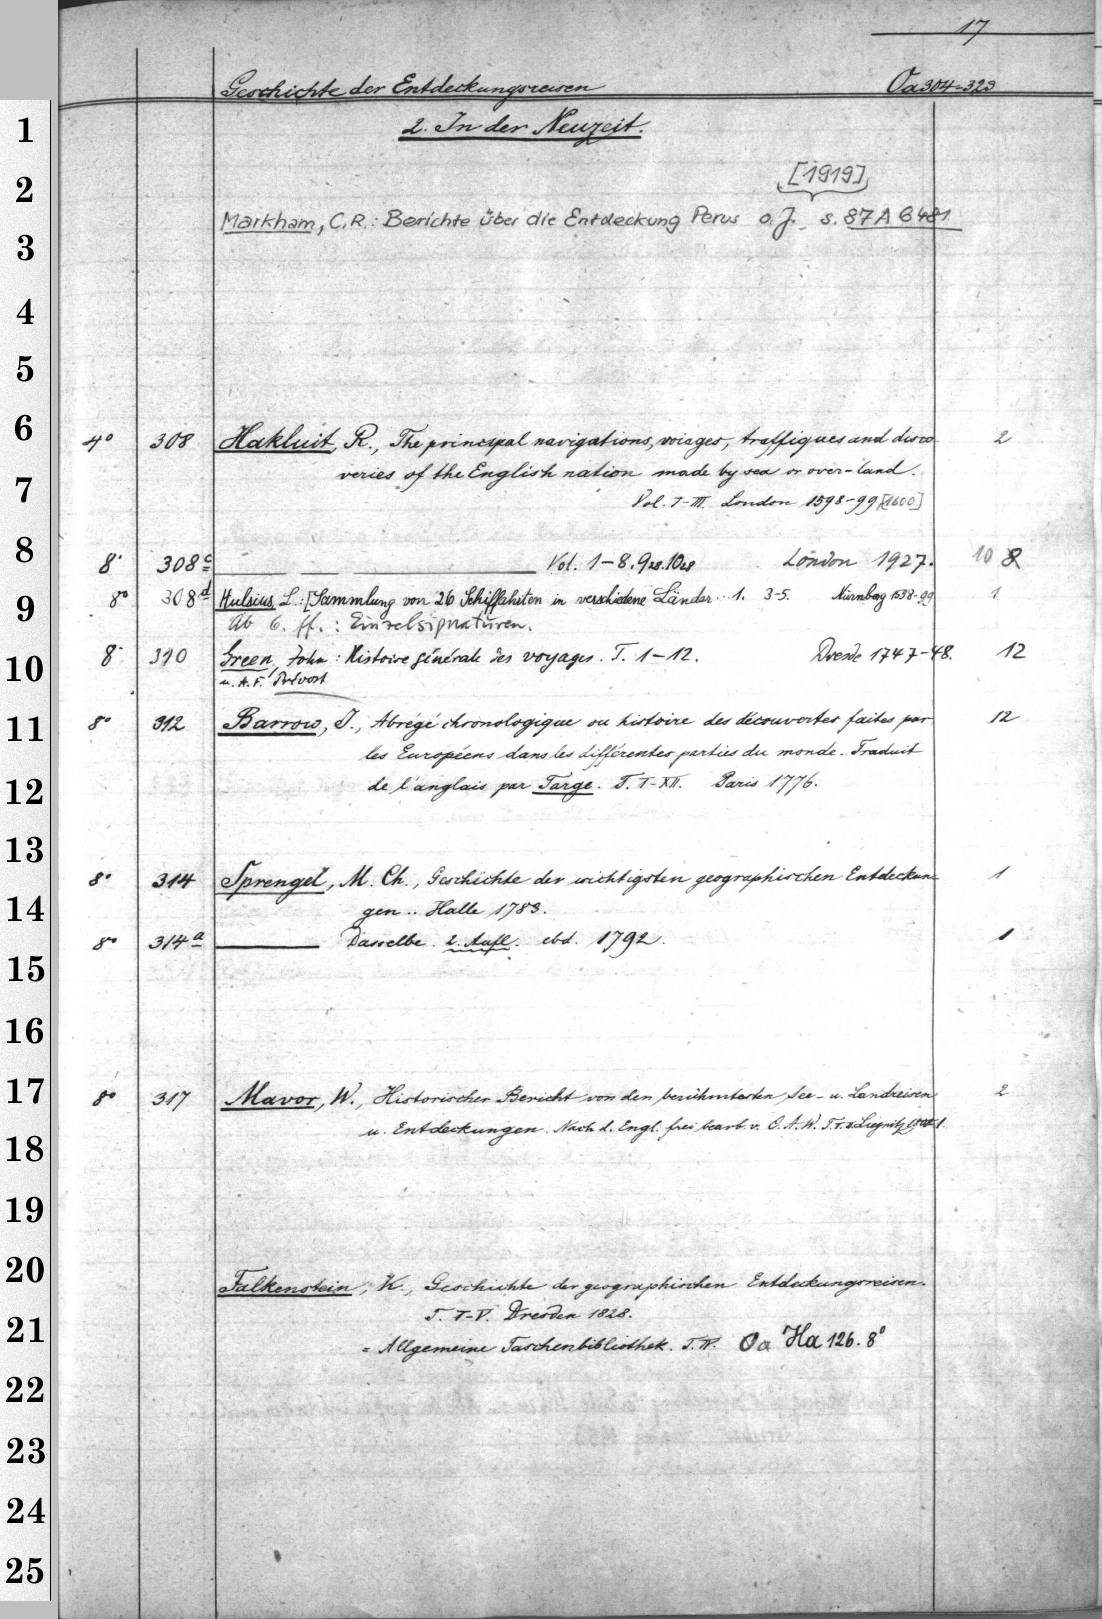 17
Geschichte der Entdeckungsreisen Oa 304-323
1
2. In der Neuzeit.
2
[1919]
Markham, C.R.: Berichte über die Entdeckung Perus o.J. s. 87 A 6481
3
4
5
6
4° 308 Hakluit, R., The principal navigations, voiages, traffiques and disco- 2
veries of the English nation made by sea or over-land.
7
Vol. I-III. London 1598-99 [1600]
8
8° 308c Vol. 1-8. 9 28. 10 28 London 1927. 10 8
9
8° 308d Hulsius, L.: Sammlung von 26 Schiffahrten in verschiedene Länder. 1. 3-5. Nürnberg 1598-99 1
Ab 6. ff.: Einzelsignaturen.
10
8° 310 Green, John: Histoire générale des voyages. T. 1-12. Dresde 1747-48. 12
u. A.F. Prévost
11
8° 312 Barrow, J., Abrégé chronologique ou histoire des découvertes faites par 12
les Européens dans les différentes parties du monde. Traduit
12
de l'anglais par Targe. T. I-XII. Paris 1776.
13
8° 314 Sprengel, M. Ch., Geschichte der wichtigsten geographischen Entdeckun- 1
14
gen.. Halle 1783.
8° 314a Dasselbe. 2. Aufl. ebd. 1792. 1
15
16
17
8° 317 Mavor, W., Historischer Bericht von den berühmtesten See- u. Landreisen 2
u. Entdeckungen. Nach d. Engl. frei bearb. v. C. A. W. Liegnitz
18
19
20
Falkenstein, K., Geschichte der geographischen Entdeckungsreisen.
T. I-V. Dresden 1828.
21
= Allgemeine Taschenbibliothek. Oa Ha 126. 8°
22
23
24
25